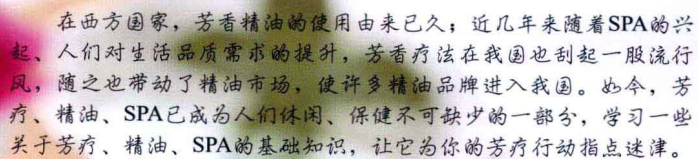 在西方国家，芳香精油的使用由来已久；近几年来随着SPA的兴
起、人们对生活品质需求的提升，芳香疗法在我国也刮起一股流行
风，随之也带动了精油市场，使许多精油品牌进入我国。如今，芳
疗、精油、SPA已成为人们休闲、保健不可缺少的一部分，学习一些
关于芳疗、精油、SPA的基础知识，让它为你的芳疗行动指点迷津。